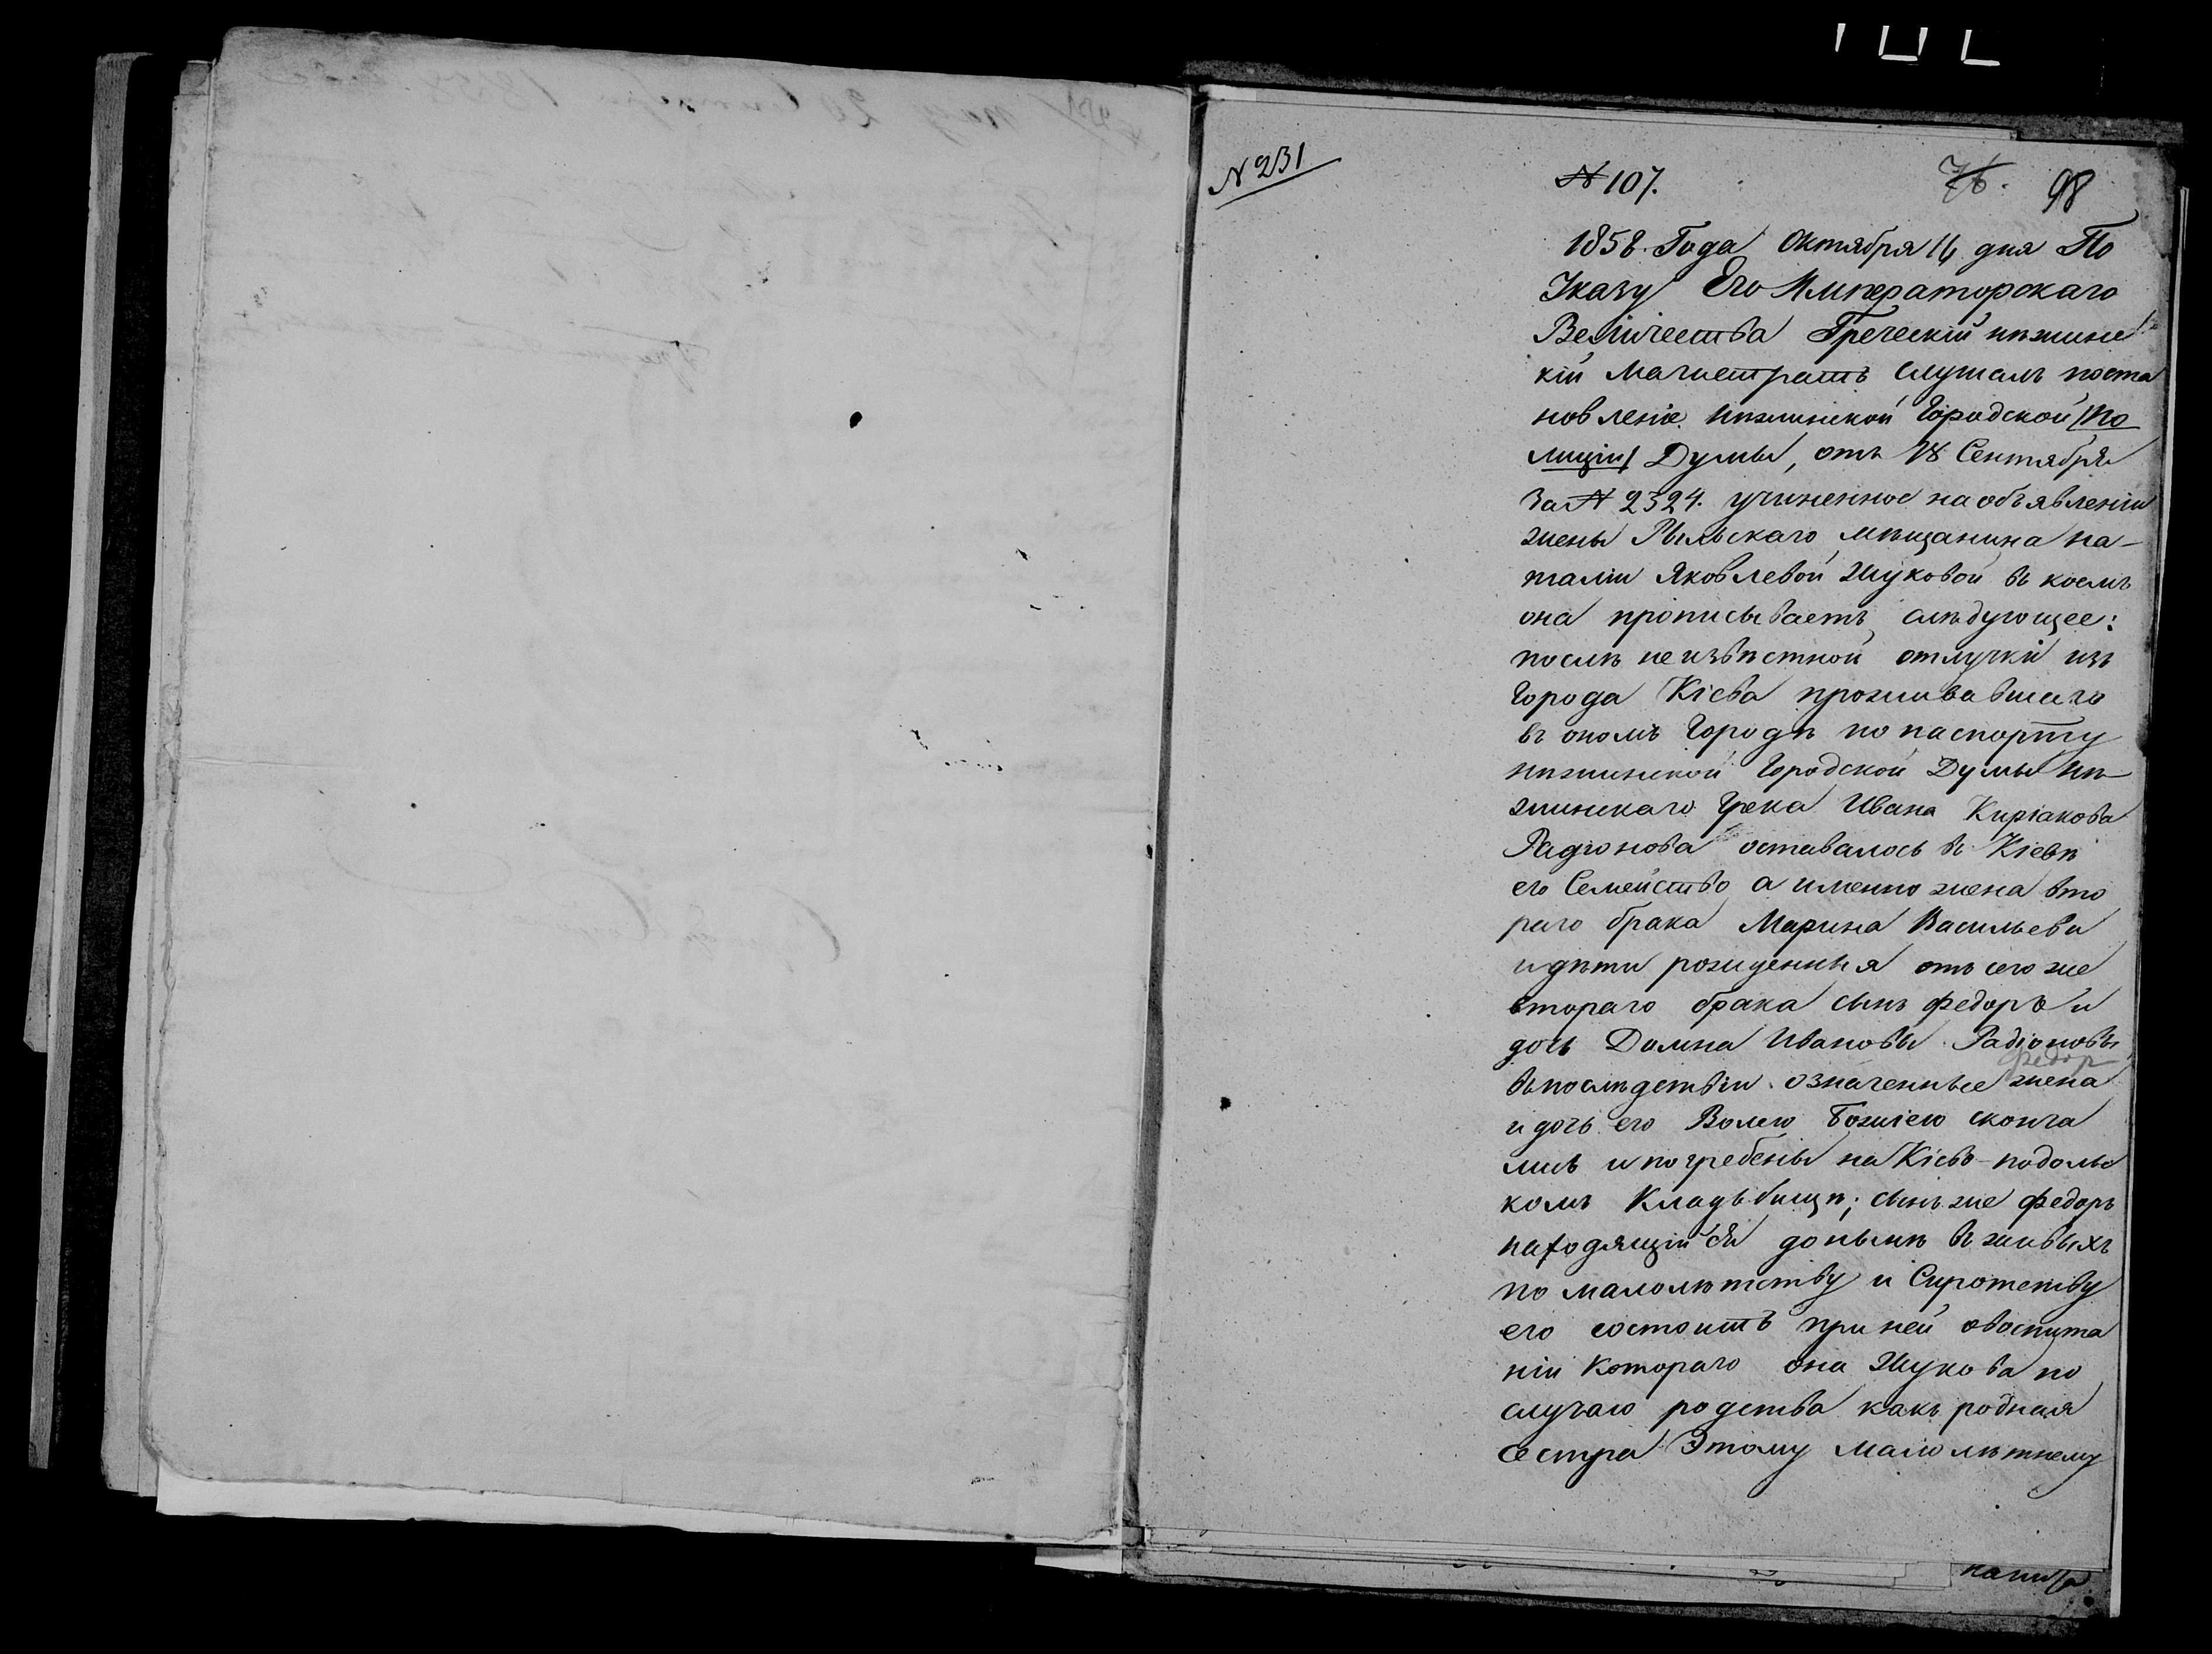 № 231
№ 107.
76. 98
1858. Года Октября 16 дня По
Указу Его Императорскаго
Величества Греческій нѣжинс
кій магистратъ слушалъ поста
новленіе нѣжинской Городской (По
лиціи) Думы, отъ 18 Сентября
За № 2324. учиненное на объявленіи
жены Рыльскаго мѣщанина На-
таліи Яковлевой Жуковой въ коемъ
она прописываетъ слѣдующее:
послѣ неизвѣстной отлучки изъ
Города Кіева проживавшаго
въ ономъ Городѣ по паспорту
нѣжинской Городской Думы Нѣ-
жинскаго Грека Ивана Киріакова
Радіонова оставалось въ Кіевѣ
его Семейство а именно жена вто
раго брака Марина Васильева
и дѣти рожденныя отъ сего же
втораго брака сынъ Федоръ и
дочь Домна Ивановы Радіоновы
федор
въпослѣдствіи означенные жена
и дочь его Волею Божіею сконча
лись и погребены на Кіево-подольс
комъ Кладьбищѣ; сынъ же Федоръ
находящійся донынѣ въ живыхъ
по малолѣтству и Сиротству
его состоитъ при ней овоспита
ніи Котораго она Жукова по
случаю родства какъ родная
сестра Этому малолѣтнему